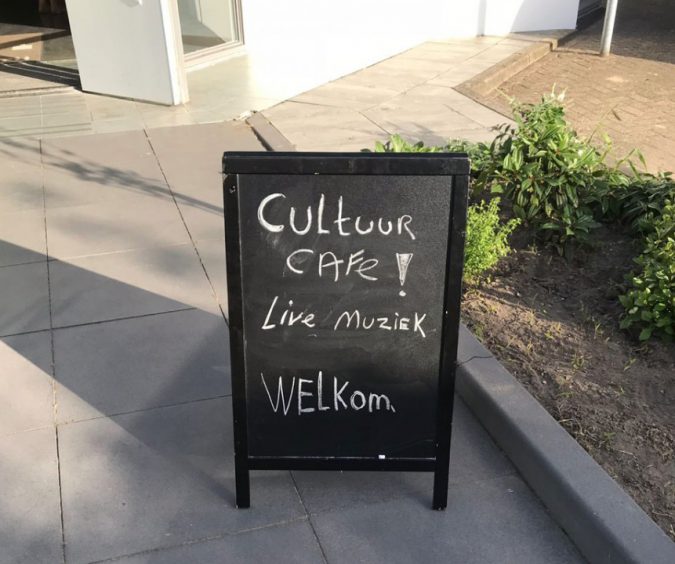 Cultuur
CAFe!
Live Muziek
WELKom.